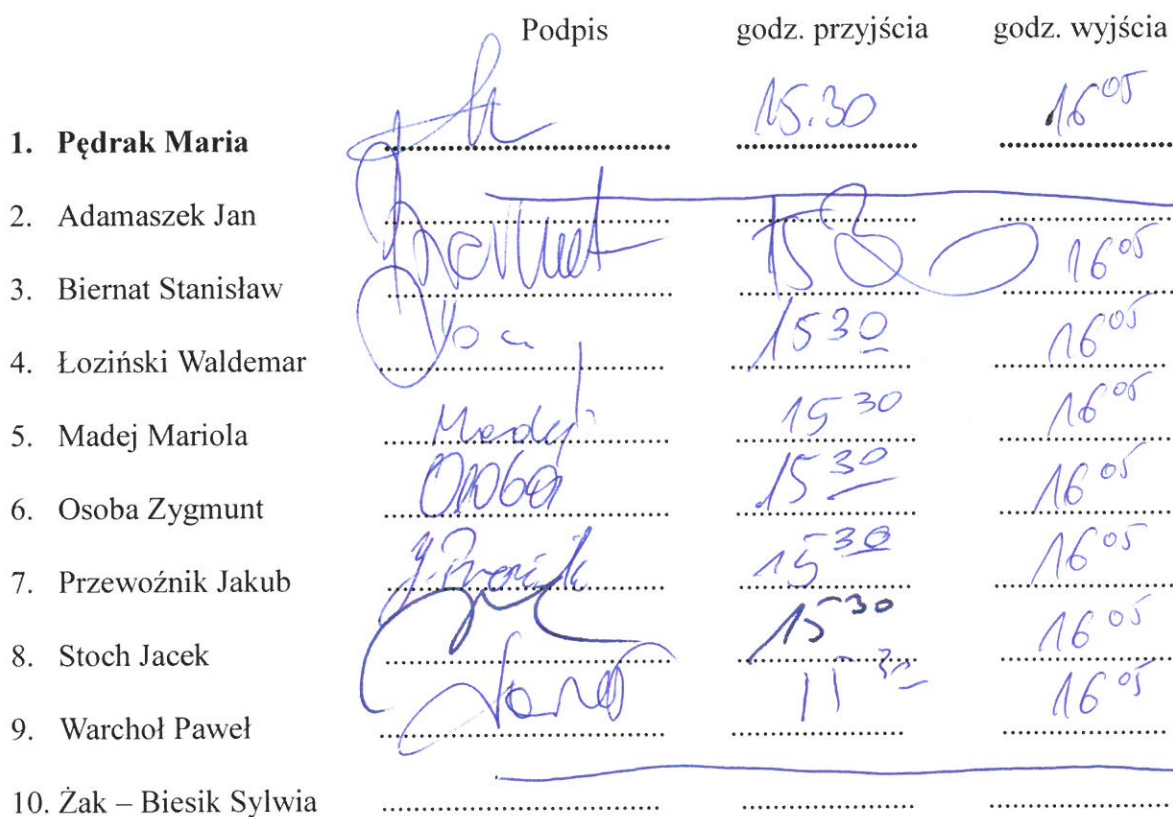 Podpis godz. przyjścia godz. wyjścia
1. Pędrak Maria 15.30 16 05
2. Adamaszek Jan
3. Biernat Stanisław 16 05
4. Łoziński Waldemar 15 30 16 05
5. Madej Mariola Madej 15 30 16 05
6. Osoba Zygmunt Osoba 15 30 16 05
7. Przewoźnik Jakub 15 30 16 05
8. Stoch Jacek 15 30 16 05
9. Warchoł Paweł 16 05
10. Żak – Biesik Sylwia